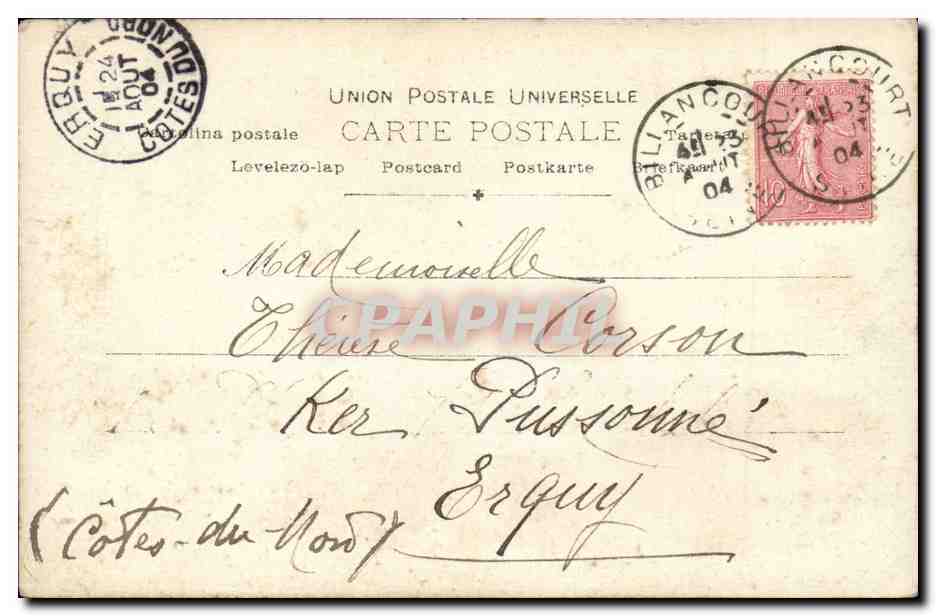 ERQUY
24
AOUT
04
COTES DU NORD
UNION POSTALE UNIVERSELLE
CARTE POSTALE
Cartolina postale
Levelezö-lap Postcard Postkarte Briefkaart
BILLANCOURT
23
AOUT
04
SEINE
BILLANCOURT
23
04
10
Mademoiselle
Thérèse Corson
Ker Pussonné
Erquy
(Côtes-du-Nord)
CPAPHIL